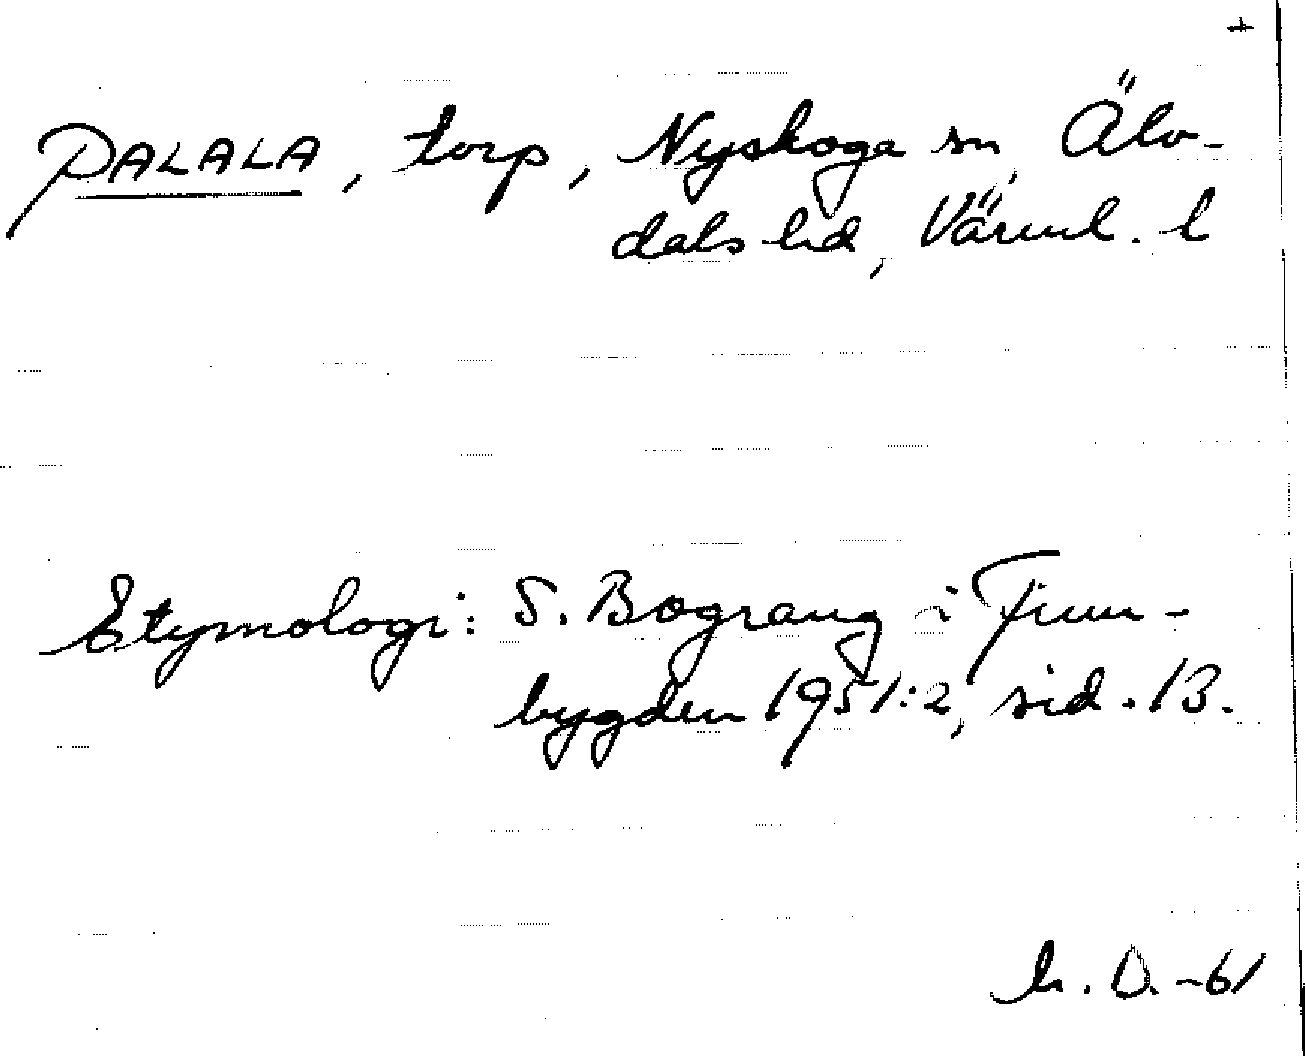 +
PALALA, torp, Nyskoga sn, Älv-
dals hd, Värml. l
Etymologi: S. Bograng i Finn-
bygden 1951:2, sid. 13.
h. D. -61